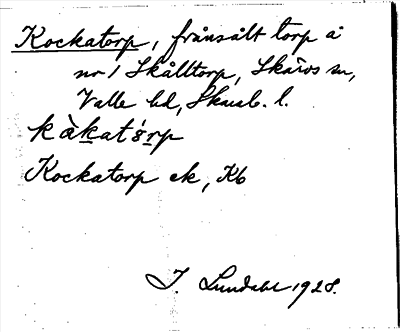 Kockatorp, frånsålt torp å
nr 1 Skålltorp, Skärvs sn,
Valle hd, Skarab. l.
kàkatórp
Kockatorp ek, Kb
I. Lundahl 1928.